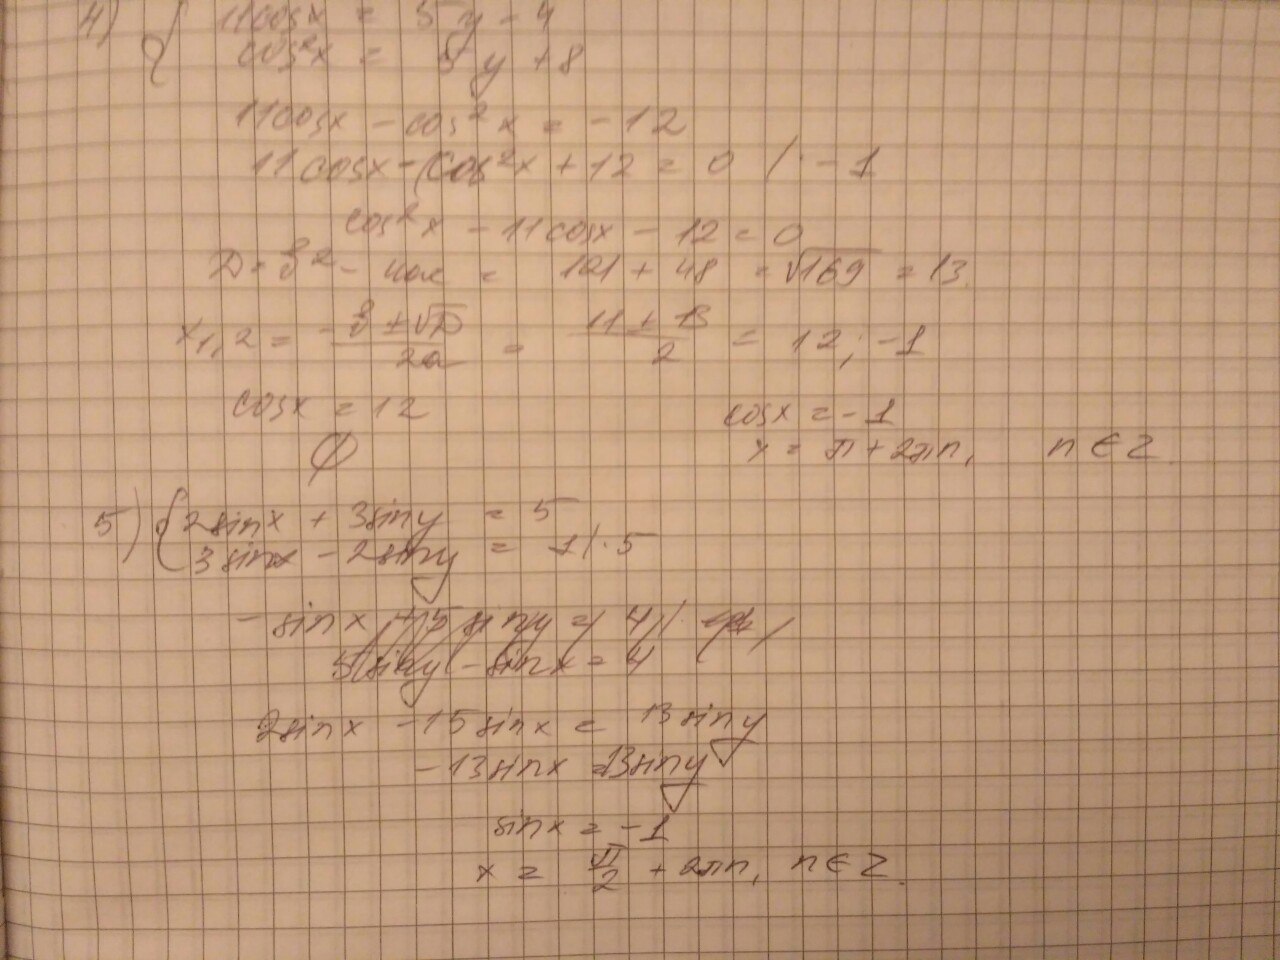 4) { 11cosx = 5y - 4
cos²x = 5y + 8
11cosx - cos²x = -12
11cosx - cos²x + 12 = 0 / · -1
cos²x - 11cosx - 12 = 0
D = b² - 4ac = 121 + 48 = √169 = 13
x₁,₂ = (-b ± √D)/2a = (11 ± 13)/2 = 12; -1
cosx = 12 cosx = -1
∅ x = π + 2πn, n ∈ Z.
5) { 2sinx + 3siny = 5
3sinx - 2siny = 1 / · 5
-sinx + 5siny = 4 / ·
5siny - sinx = 4
2sinx - 15sinx = 13siny
-13sinx = 13siny
sinx = -1
x = π/2 + 2πn, n ∈ Z.